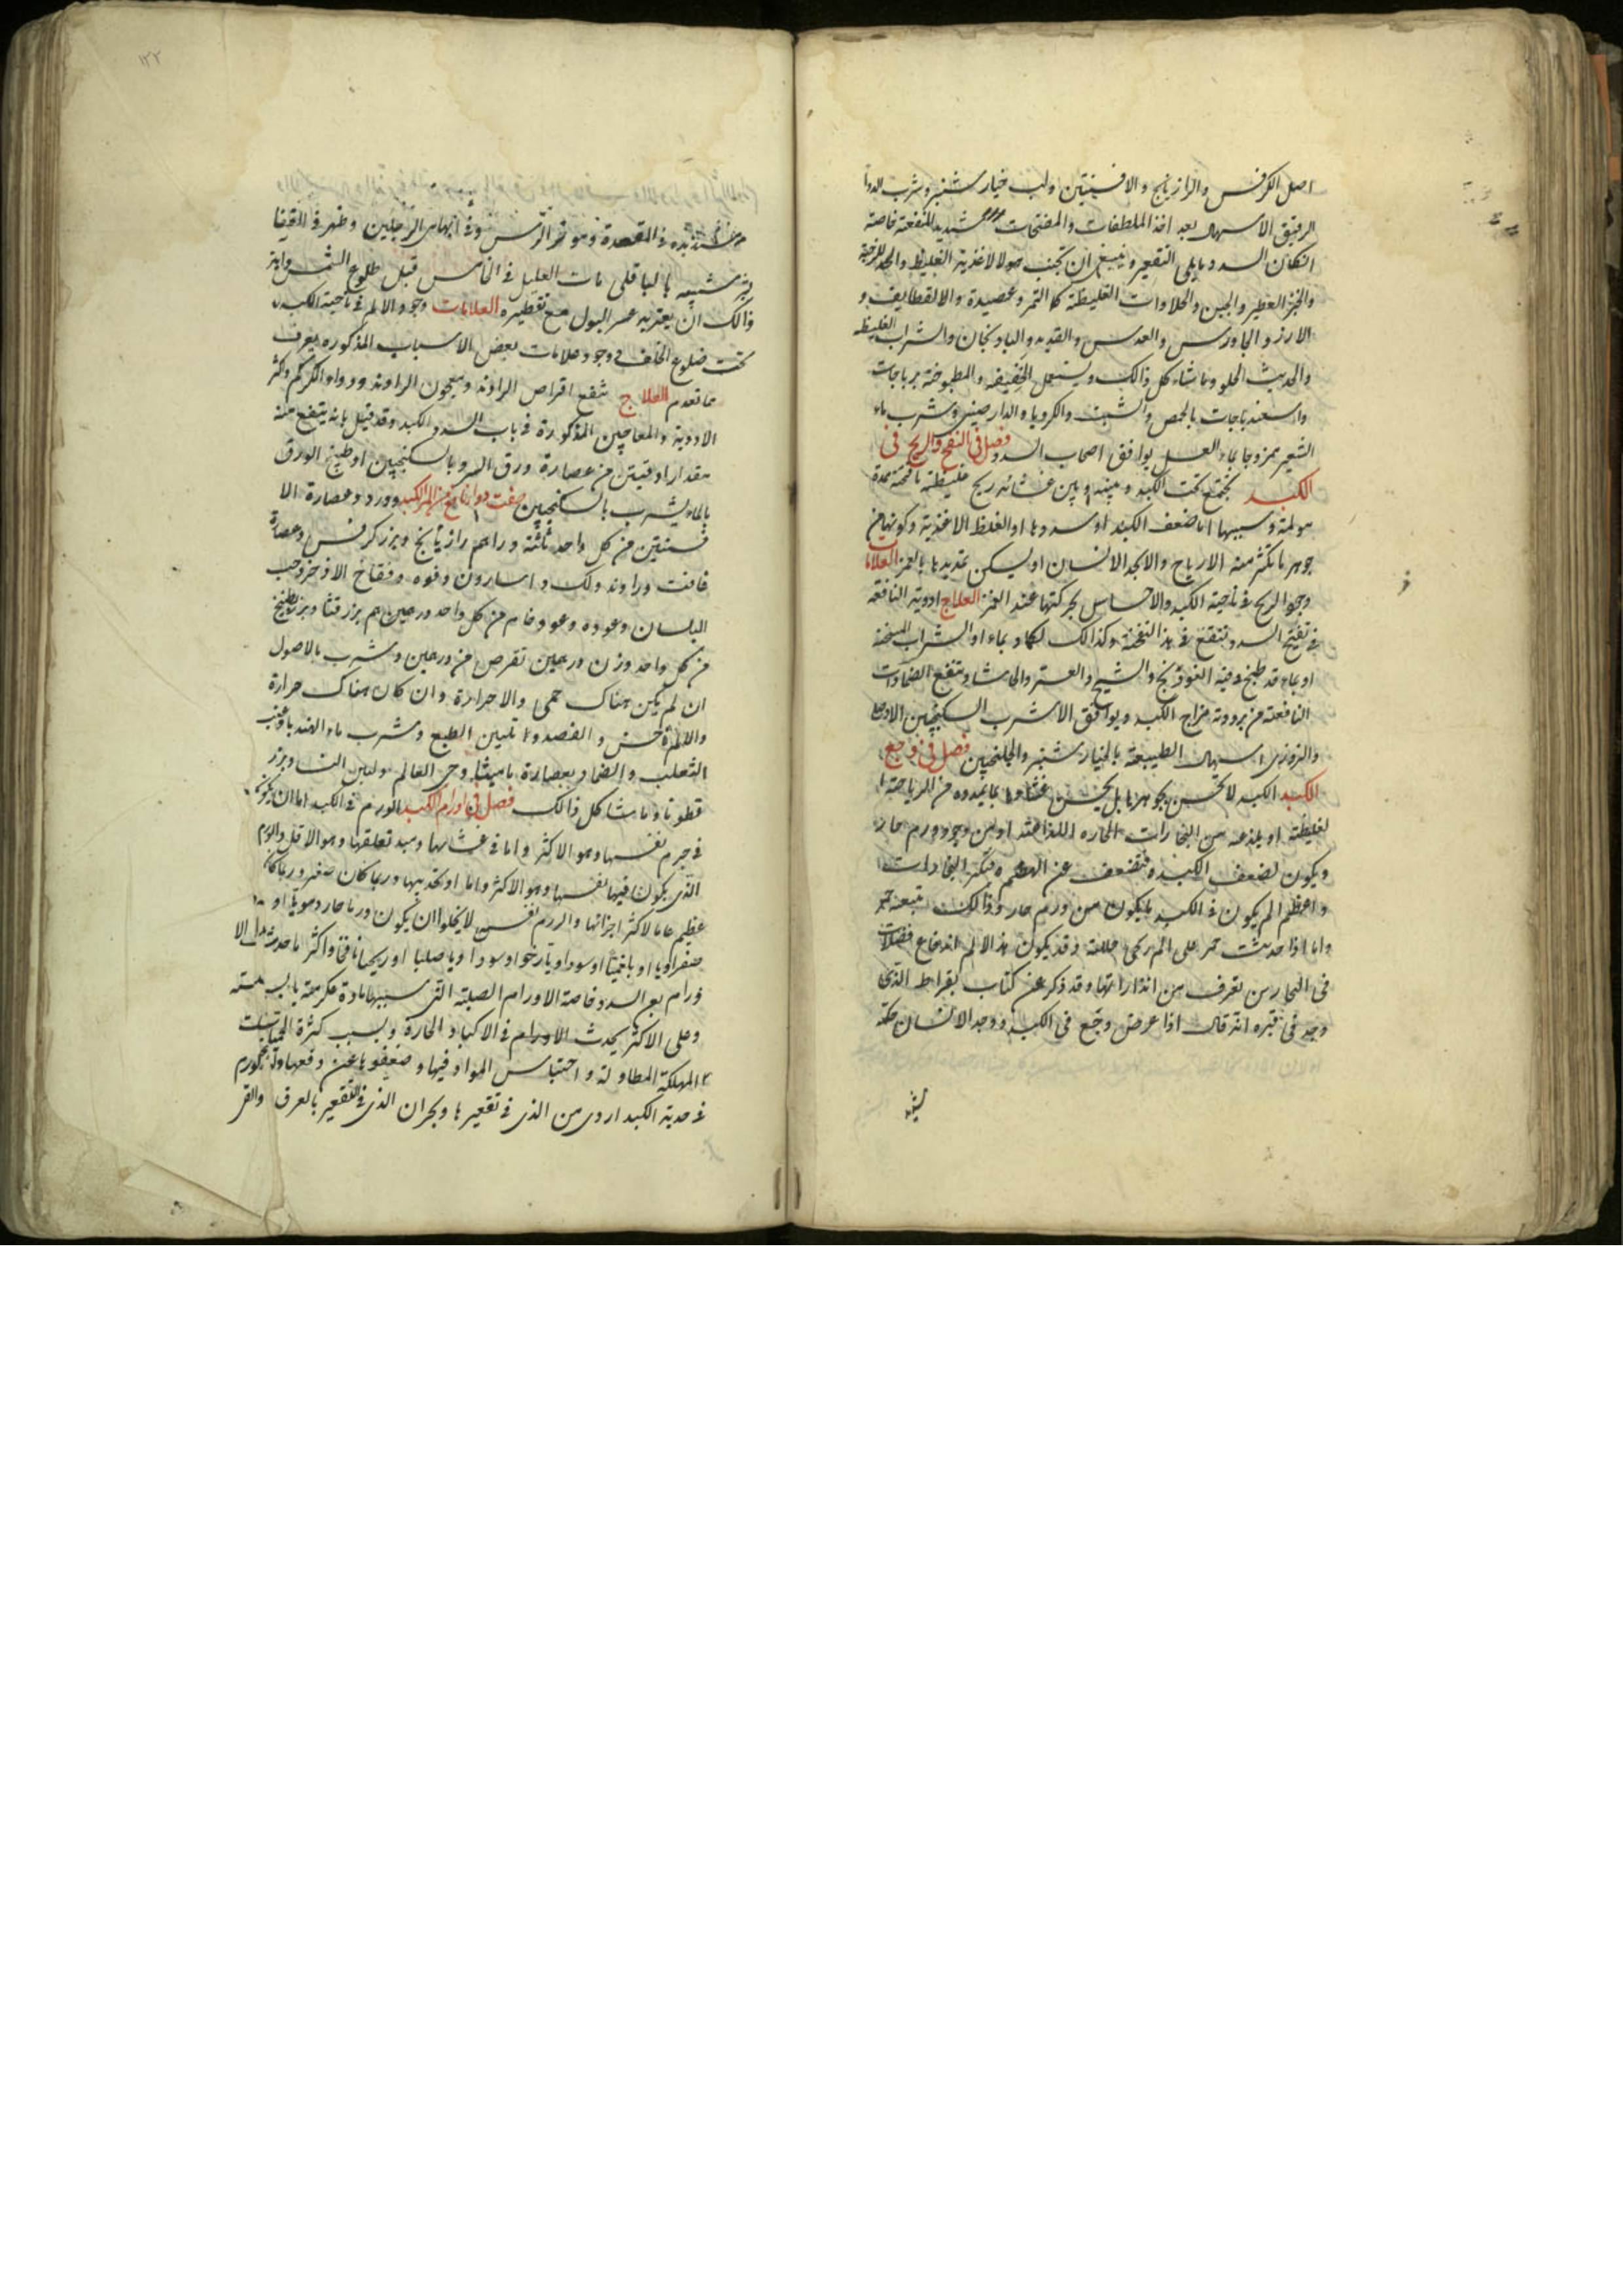 اصل الكرفس والرازيانج والافسنتين ولب خيار شنبر وشرب الدوا
الرقيق الاسهال بعد اخذ الملطفات والمفتحات شديد المنفعة خاصة
انكان السدد يلى التقعير وينبغى ان تجتنب هولا الاغذية الغليظة
والخبز الفطير والجبن والحلاوات الغليظة كا التمر وعصيدة والالقطايف و
الارز والجاورس والعدس والقديد والبادنجان والشراب الغليظه
والحديث الحلو وما شاء كل ذالك ويستعمل الخفيفه والمطبوخة بزيرباجات
واسفندباجات بالحمص والشبت والكرويا والدارصينى وشرب ماء
الشعير ممزوجا بماء العسل يوافق اصحاب السدد فصل فى النفخ والريح فى
الكبد يجتمع تحت الكبد وبينها وبين غشائه ريح غليظة نافخة ممددة
مولمة وسببها اما ضعف الكبد او سددها او الغلظ الاغذية وكونها من
جوهر ما تكثر منه الارياح والا يجد الانسان او ليسكن تمديدها بالغمز العلامات
وجود الريح فى ناحية الكبد والاحساس بحركتها عند الغمز العلاج ادوية النافعه
فى تفتح السدد تنفع فى هذا النفخة وكذالك الكماد بماء او الشراب المسخنة
او بماء قد طبخ فيه الفوذنج والشيح والصعتر والحاشا وتنفع الضمادات
النافعة من برودة مزاج الكبد ويوافق الا شرب السكنجبين الاصول
والبزورى اسهال الطبيعة بالخيار شنبر والجلنجبين فصل فى وجع
الكبد الكبد لا تحس بجوهرها بل يحس غشاوها بما يمدده من الرياح ا
لغليظة او يلذعه من البخارات الحاره اللذاعة او من وجود ورم حار
ويكون لضعف الكبد فتضعف عن الهضم فتكثر البخارات
واعظم الم يكون فى الكبد ما يكون من ورم حار وذالك تتبعه حمى
واما اذا حدثت حمى على الم ركى حللته وقد يكون هذا الالم اندفاع فضلات
فى البحارين تعرف من انذاراتها وقد ذكر عن كتاب بقراط الذى
وجد فى قبره انه قال اذا عرض وجع فى الكبد ووجد الانسان حكة
شديده فى القمحدوة وموخر الراس وفى ابهامى الرجلين وظهر فى القفا
بثر شبيه بالباقلى مات العليل فى الخامس قبل طلوع الشمس واية
ذالك ان يعتريه عسر البول مع تقطيره العلامات وجود الالم فى ناحية الكبد
تحت ضلوع الخلف ووجود علامات بعض الاسباب المذكوره يعرف
مما تقدم العلاج تنفع اقراص الراوند ومعجون الراوند ودواء الكركم واكثر
الادوية والمعاجين المذكورة فى باب السدد الكبد وقد قيل بانه ينتفع منه
مقدار اوقيتن من عصارة ورق السرو بالسكنجبين او طبيخ الورق
بالماء يشرب بالسكنجبين صفت دوا نافع من الم الكبد وورد وعصارة الا
فسنتين من كل واحد ثلثة دراهم رازيانج وبزر كرفس وعصارة
غافت وراوند ولك واسارون وفوه وفقاح الاذخر وحب
البلسان وعوده وعود خام من كل واحد درهمين بزر قثا وبزر بطيخ
من كل واحد وزن درهمين تقرص من درهمين وشرب بالاصول
ان لم يكن هناك حمى والا حرارة وان كان هناك حرارة
والالم اخس والفصد والا تليين الطبع وشرب ماء الهندبا وعنب
الثعلب والضماد بعصارة ماميثا وحى العالم ولبن النساء وبزر
قطونا وما شاكل ذالك فصل فى اورام الكبد الورم فى الكبد اما ان يكون
فى جرم نفسها وهو الاكثر واما فى غشائها ومبد تعلقها وهو الاقل والورم
الذى يكون فيها نفسها وهو الاكثر واما او تحديبها وربما كان صغير وربما كان
عظيم عاما لاكثر اجزائها والورم نفس لا يخلوا ان يكون ورما حار دمويا او
صفراويا او بلغميا او سوداويا رخوا وسودا ويا صلبا او ريحيا نافخا واكثر ما حدث الا
ورام بع السدد خاصة الاورام الصلبة التى سببها مادة عكرة يابسة
وعلى الاكثر يحدث الاورام فى الاكباد الحارة وبسبب كثرة الحميات
المهلكة المطاولة واحتباس المواد فيها وضعفها عن دفعها والورم
فى حدبة الكبد اردى من الذى فى تقعيرها وبحران الذى فى التقعير بالعرق والقى